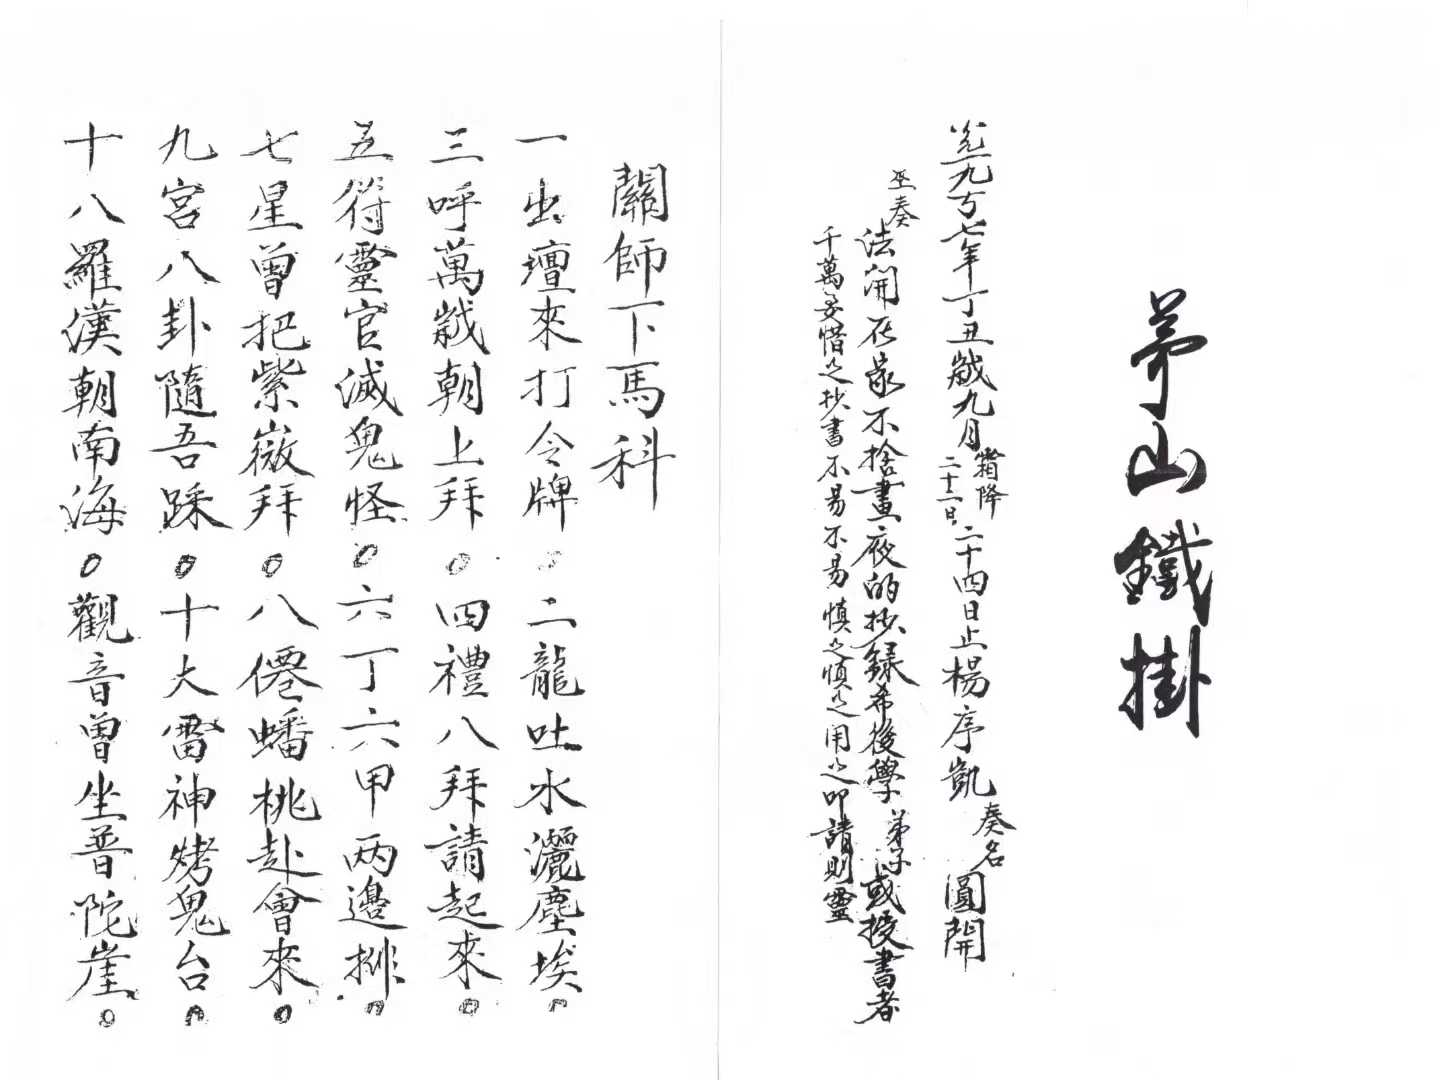 茅山鐵掛
九七年丁丑歲九月霜降二十二日二十四日止楊序凱奏名圓開
巫奏法開在家不捨晝夜的抄錄希後學弟子或授書者
千萬愛惜之抄書不易不易慎之慎之用之叩請則靈
關師下馬科
一出壇來打令牌。二龍吐水灑塵埃。
三呼萬歲朝上拜。四禮八拜請起來。
五符靈官滅鬼怪。六丁六甲兩邊排。
七星曾把紫薇拜。八僊蟠桃赴會來。
九宮八卦隨吾踩。十大雷神烤鬼台。
十八羅漢朝南海。觀音曾坐普陀崖。